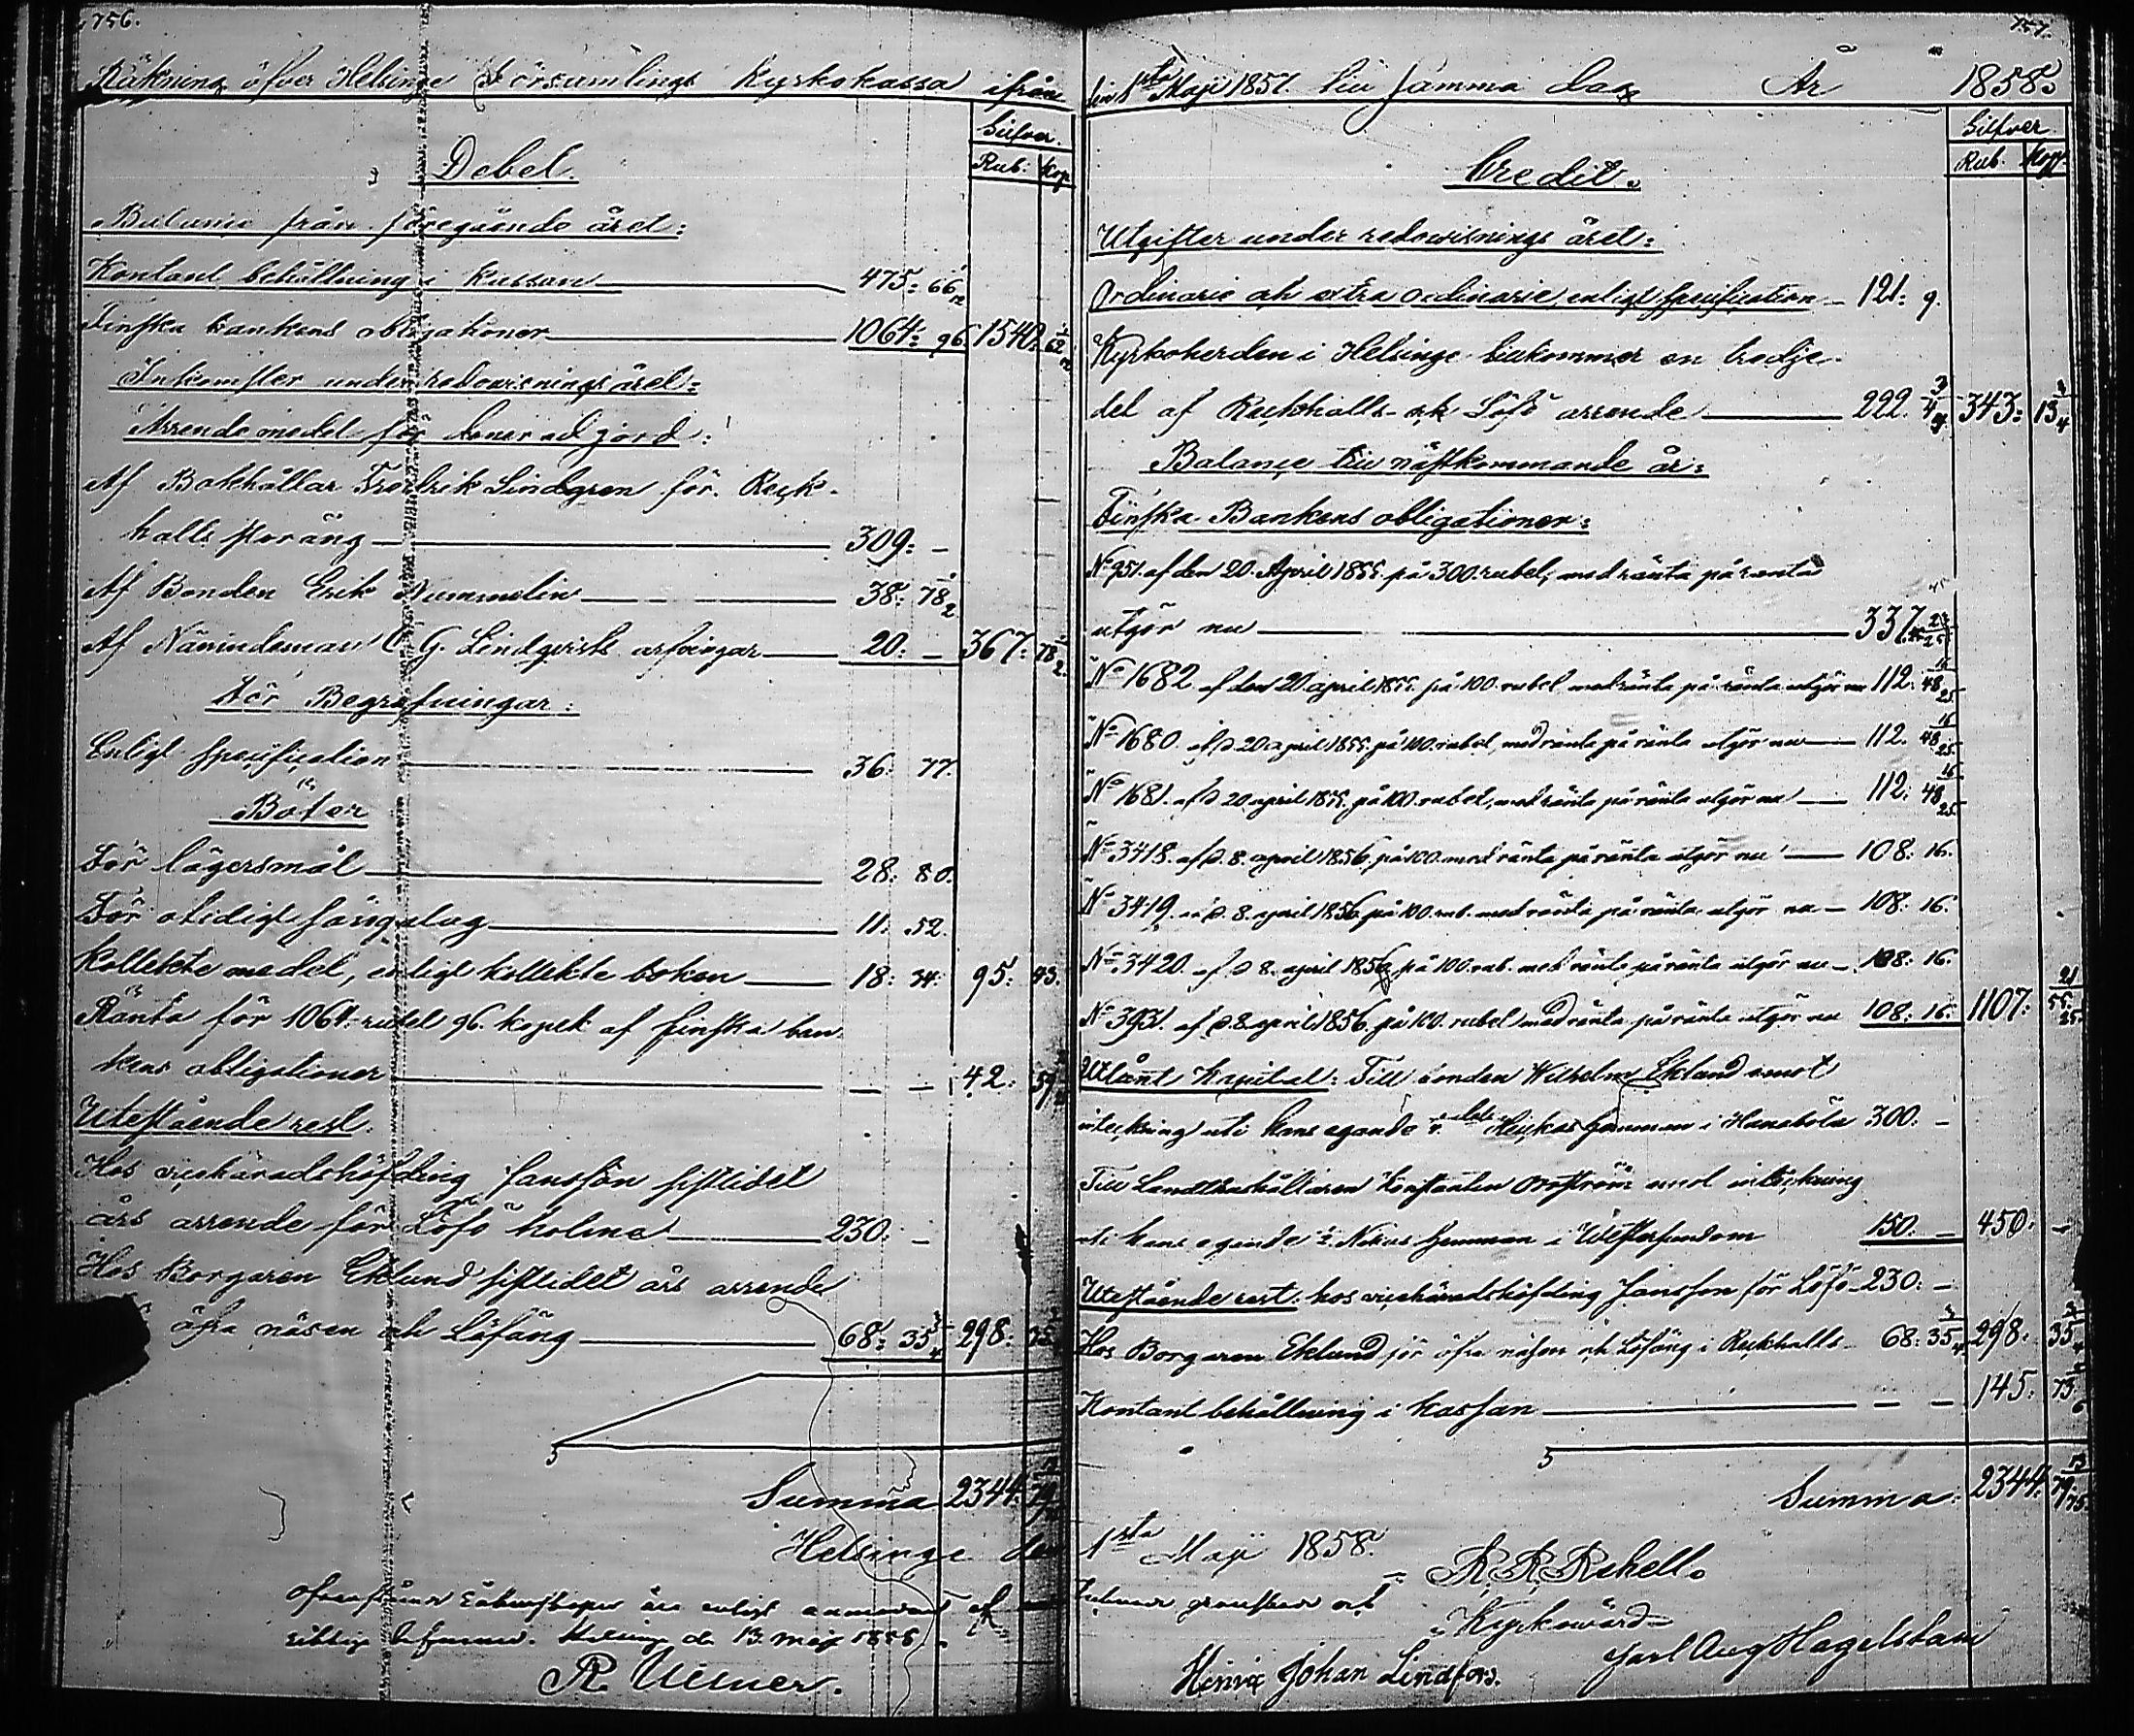 756.
Räkning öfver Helsinge Församlings Kyrkokassa ifrån
Silfver.
Rub: Kop
Debet.
Balance från föregående året:
Kontant behållning i Kassan 475: 66 1/2
Finska bankens obligationer 1064: 96 1540: 62 1/2
Inkomster under redovisnings året:
Arrende medel för donerad jord:
Af Bokhållar Fredrik Lindgren för Reck-
halls storäng 309: -
Af Bonden Erik Nummelin 38: 78 1/2
Af Nämndeman C G. Lindqvists arfvingar 20: - 367: 78 1/2
För Begrafningar:
Enligt specification 36: 77.
Böter
För lägersmål 28: 80.
För otidigt sängalag 11: 52.
Kollekte medel, enligt kollekte boken 18: 34: 95: 43.
Ränta för 1064 rubel 96. kopek af finska ban-
kens obligationer - - 42: 59
Utestående rest.
Hos vicehäradshöfding Jansson sistlidet
års arrende för Löfö holme 230: -
Hos Borgaren Eklund sistlidet års arrende
öfra näsen och Löfäng 68: 35 3/4 298: 35
Summa 2344: 79
Helsinge den
Helsinge d. 13 Maj 1858.
R. Ullner.
757.
den 1sta Maji 1857. till samma dag År 1858
Silfver
Rub. Kop.
Credit.
Utgifter under redovisnings året:
Ordinarie och extra ordinarie, enligt specification 121: 9.
Kyrkoherden i Helsinge tillkommer en tredje-
del af Reckhalls och Löfö arrende 222. 4 3/4 343: 13 3/4
Balance till nästkommande år:
Finska Bankens obligationer:
No 951. af den 20. April 1855. på 300. rubel, med ränta på ränta
utgör nu 337. 23/25
No 1682 af den 20 april 1855. på 100. rubel med ränta på ränta utgör nu 112. 48 16/25
No 1680. af d. 20 april 1855. på 100. rubel, med ränta på ränta utgör nu 112. 48 16/25
No 1681. af d. 20 april 1855. på 100. rubel, med ränta på ränta utgör nu 112: 48 16/25
No 3418. af d. 8. april 1856. på 100. med ränta på ränta utgör nu 108: 16.
No 3419. af d. 8. april 1856 på 100. rub. med ränta på ränta utgör nu 108: 16.
No 3420. af d 8. april 1856 på 100. rub. med ränta på ränta utgör nu 108: 16.
No 3931. af d. 8. april 1856. på 100. rubel med ränta på ränta utgör nu 108: 16. 1107: 55 21/25
Utlånt Kapital: Till bonden Wilhelm Eklund emot
inteckning uti hans egande Heickas hemman i Hanaböle 300: -
Till Konstantin Öström emot inteckning
uti hans egande hemman i Westersundom 150. - 450. -
Utestående rest: hos vicehäradshöfding Jansson för Löfö 230: -
Hos Borgaren Eklund för öfra näsen och Löfäng i Reckhalls 68: 35 3/4 298: 35 3/4
Kontant behållning i kassan - - 145: 73
Summa. 2344. 79. 13/75
1sta Maji 1858.
R. R. Rehell.
Kyrkovärd
Carl Aug Hagelstam
Henric Johan Lindfors.